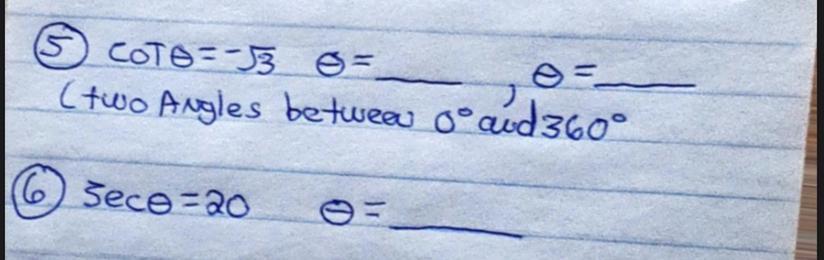 ⑤ COTθ=-√3 θ=____, θ=____
(two Angles between 0° and 360°
⑥ Secθ=20 θ=____